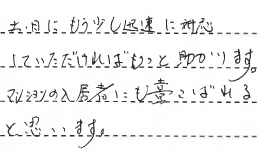 土、日にもう少し迅速に対応
していただければもっと助かります。
マンションの入居者にも喜こばれる
と思います。